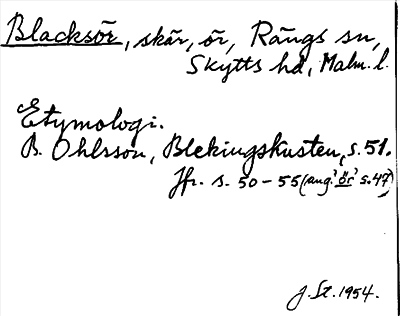 Blacksör, skär, ör, Rängs sn,
Skytts hd, Malm. l.
Etymologi.
B. Ohlsson, Blekingskusten, s. 51.
Jfr. s. 50-55 (ang. 'ör' s. 47)
J. St. 1954.